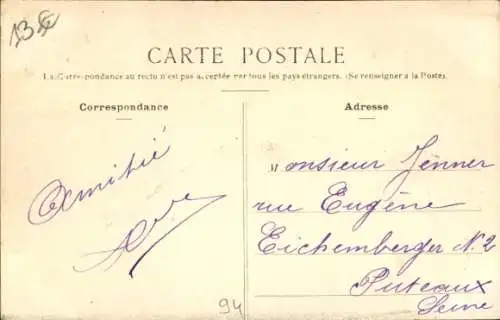 CARTE POSTALE
La Correspondance au recto n'est pas acceptée par tous les pays étrangers. (Se renseigner à la Poste).
Correspondance
Adresse
Amitié
Monsieur Jenner
rue Eugène
Eichemberger N. 2
Puteaux
Seine
94